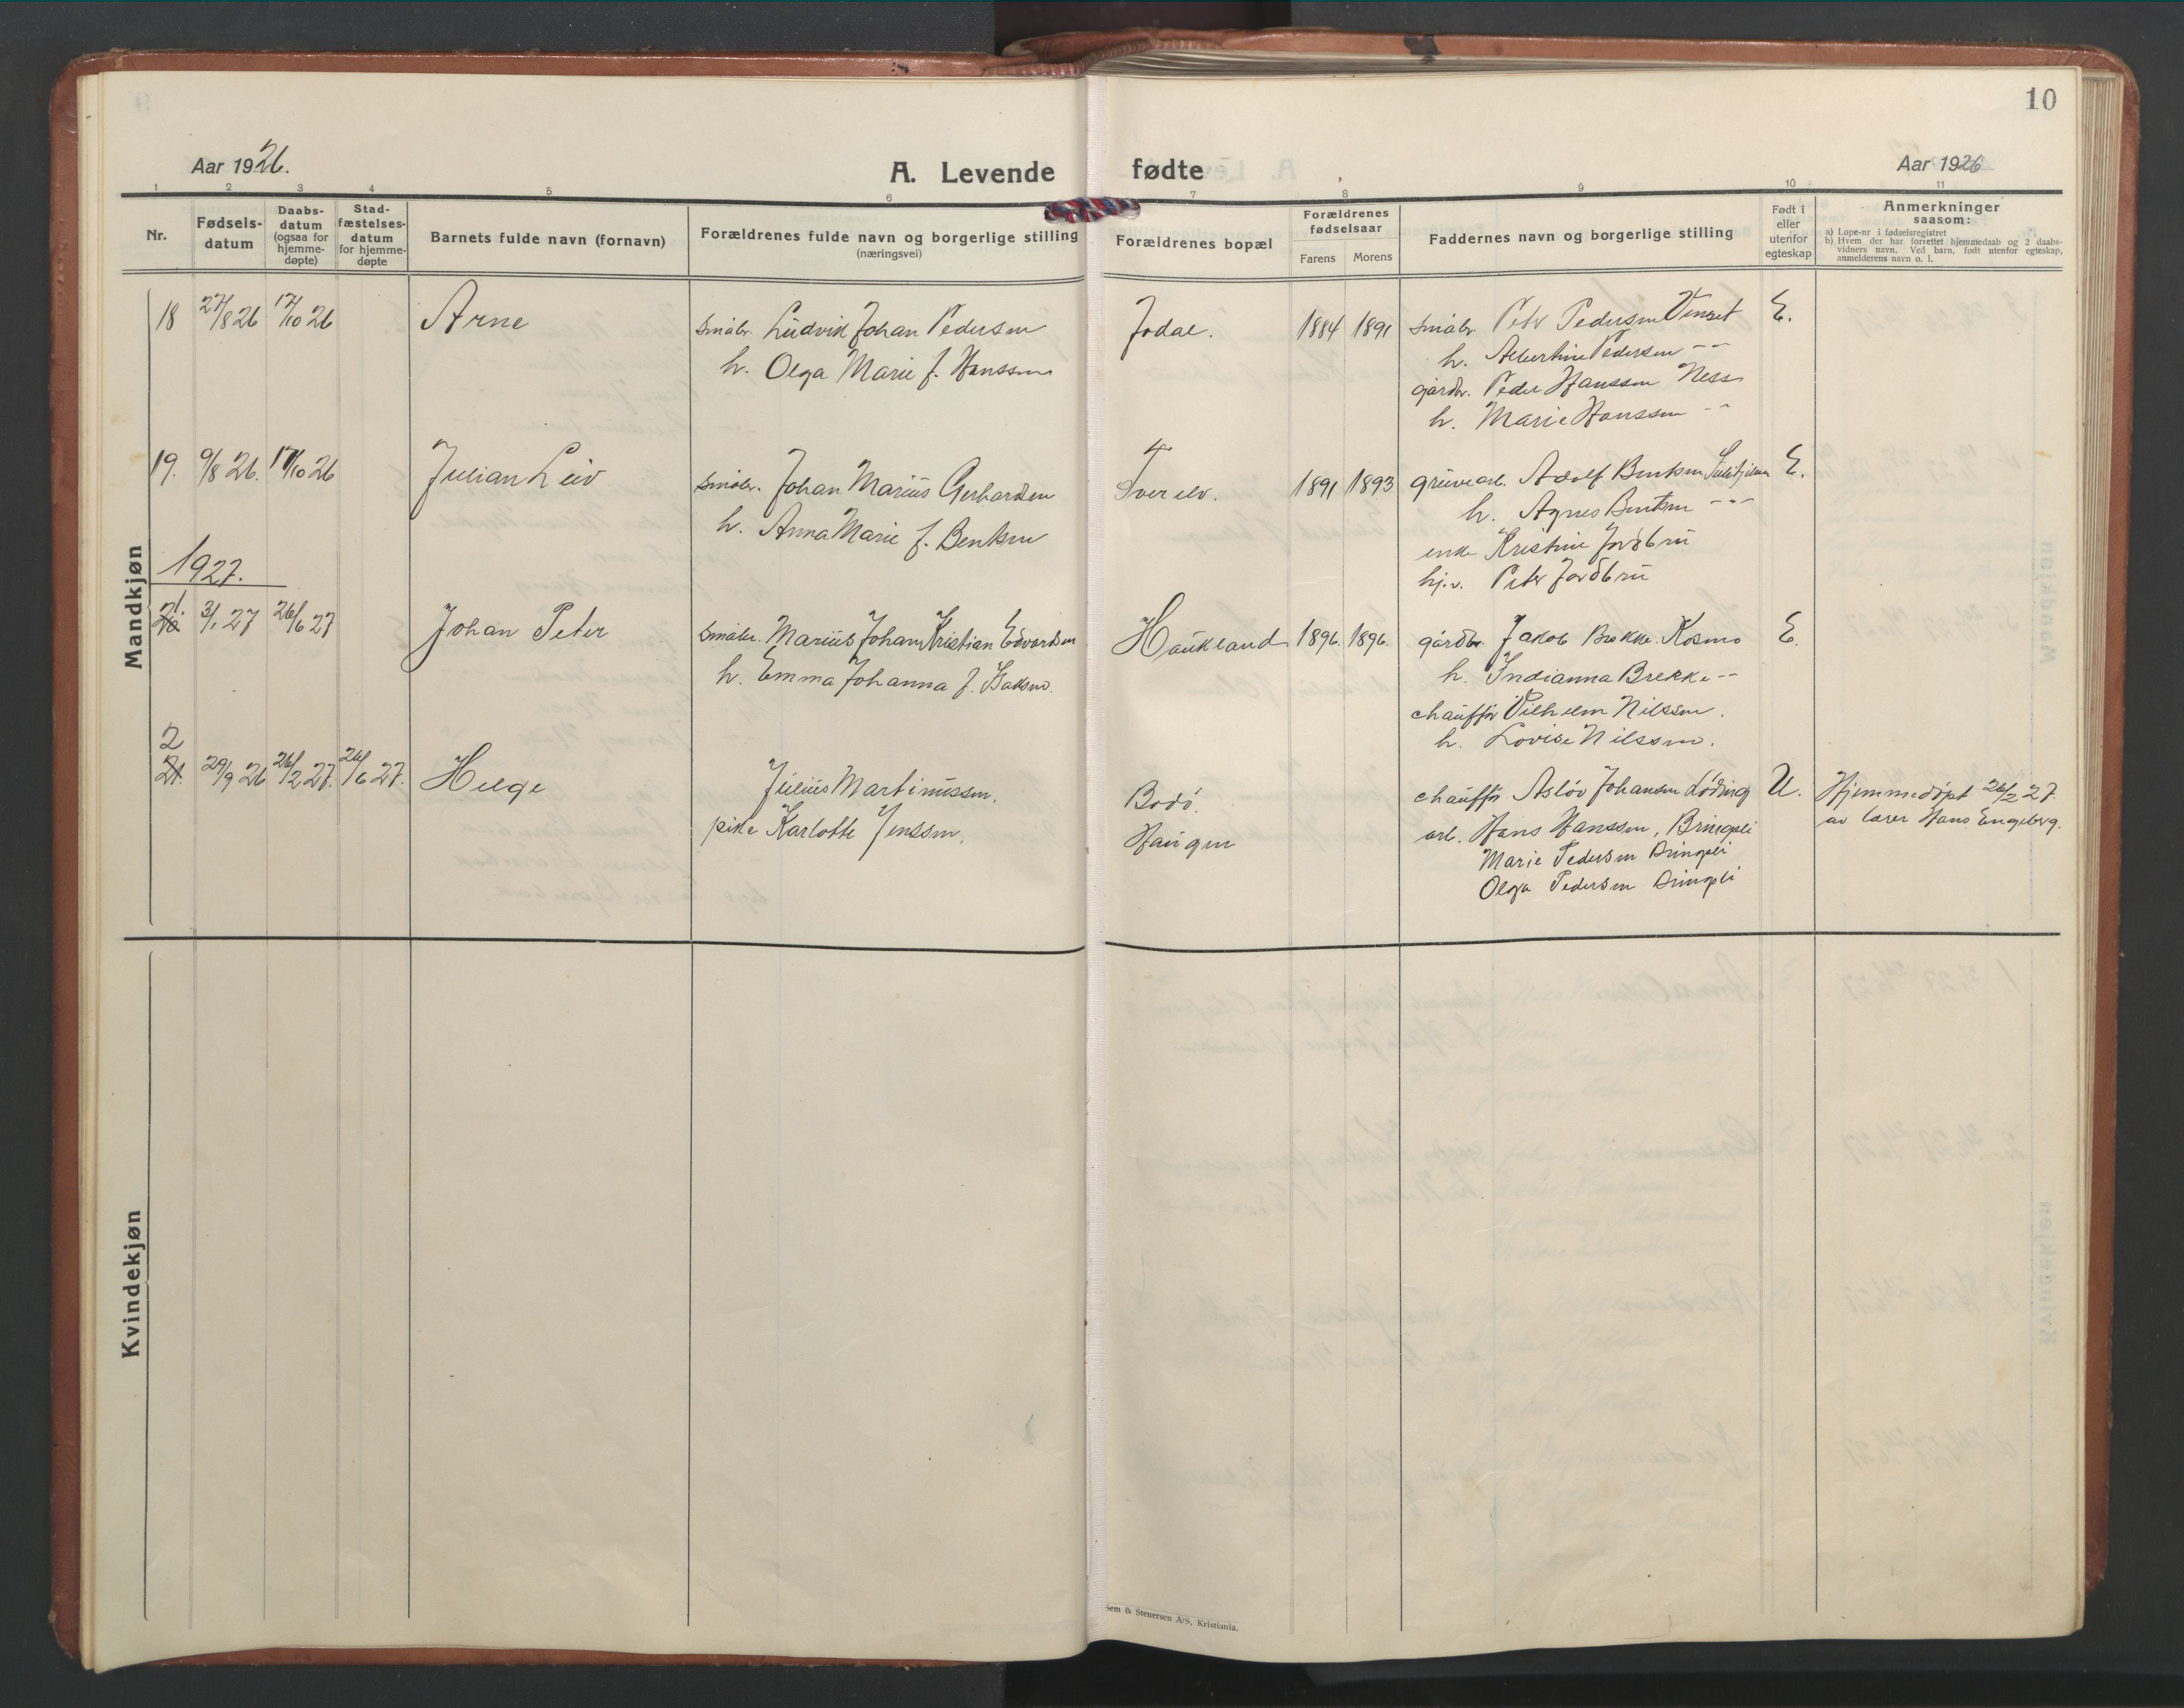 10
Aar 1926.
A. Levende fødte
Aar 1926
1 2 3 4 5 6 7 8 9 10 11
Nr.
Fødsels-
datum
Daabs-
datum
(ogsaa for
hjemme-
døpte)
Stad-
fæstelses-
datum
for hjemme-
døpte
Barnets fulde navn (fornavn)
Forældrenes fulde navn og borgerlige stilling
(næringsvei)
Forældrenes bopæl
Forældrenes
fødselsaar
Farens Morens
Faddernes navn og borgerlige stilling
Født i
eller
utenfor
egteskap
Anmerkninger
saasom:
a) Løpe-nr i fødselsregistret
b) Hvem der har forrettet hjemmedaab og 2 daabs-
vidners navn. Ved barn, født utenfor egteskap,
anmelderens navn o. l.
Mandkjøn
18 27/8 26 17/10 26 Arne
småbr. Ludvik Johan Pedersen
h. Olga Marie f. Hanssen
Jodal. 1884 1891
småbr. Petr Pedersen Venset E.
h. Albertine Pedersen - -
gårdbr. Peder Hanssen Ness
h. Marie Hanssen - -
19. 9/8 26. 17/10 26 Julian Leiv
småbr. Johan Marius Gerhardsen
h. Anna Marie f. Bentsen
Tverelv. 1891 1893
gruvearb. Adolf Bentsen Sulitjelma E.
h. Agnes Bentsen - - -
enke Kristine Jordbru
hj.v. Peter Jordbru
1927.
21. 3/1 27 26/6 27 Johan Peter
småbr. Marius Johan Kristian Edvardsen
h. Emma Johanna f. Isaksen.
Haukland 1896. 1896.
gårdbr. Jakob Brekke. Kosmo E.
h. Indianna Brekke - -
chauffør Vilhelm Nilssen.
h. Lovise Nilssen.
2
21. 29/9 26 26/2 27. 26/6 27. Helge
Julius Martinussen.
pike Karlotte Jenssen.
Bodø.
Haugen
chauffør Asløv Johansen Løding U.
arb. Hans Hanssen, Bringsli
Marie Pedersen Bringsli
Olga Pedersen Bringsli
Hjemmedøpt 26/2 27.
av lærer Hans Engeberg.
Kvindekjøn
Sem & Stenersen A/S, Kristiania.